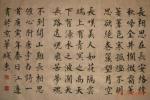 長相思在長安絡緯
秋啼金井闌微霜淒
淒簟色寒孤燈不明
思欲絕卷帷望月空
長嘆美人如花隔雲
端上有青冥之長天
下有淥水之波瀾天
長路遠魂飛苦夢魂
不到關山難長相思
摧心肝
書於京華